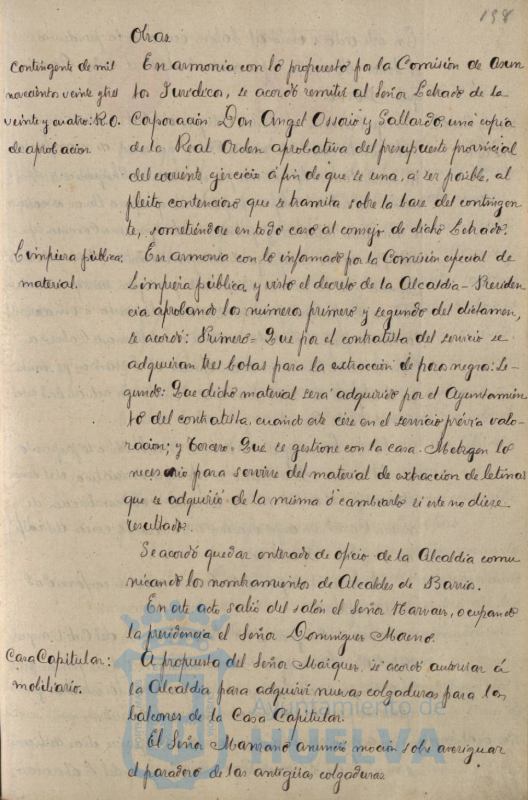 198
Obras
Contingente de mil
novecientos veinte y tres
veinte y cuatro: R.O.
de aprobacion
En armonia con lo propuesto por la Comisión de Asun
tos Juridicos, se acordó remitir al Señor Letrado de la
Corporación Don Angel Ossorio y Gallardo, una copia
de la Real Orden aprobativa del presupuesto provincial
del corriente ejercicio á fin de que se una, á ser posible, al
pleito contencioso que se tramita sobre la base del contingen
te, sometiéndose en todo caso al consejo de dicho Letrado.
Limpieza pública:
material.
En armonia con lo informado por la Comisión especial de
Limpieza pública y visto el decreto de la Alcaldia-Presiden
cia aprobando los numeros primero y segundo del dictamen,
se acordó: Primero= Que por el contratista del servicio se
adquieran tres botas para la extracción de pozo negro: Se-
gundo: Que dicho material será adquirido por el Ayuntamien
to del contratista, cuando este cese en el servicio prévia valo-
racion; y Tercero= Que se gestione con la casa Metzger lo
necesario para servirse del material de extraccion de letrinas
que se adquirió de la misma ó cambiarlo si este no diese
resultados.
Se acordó quedar enterado de oficio de la Alcaldia comu
nicando los nombramientos de Alcaldes de Barrio.
En este acto salió del salón el Señor Narvaez, ocupando
la presidencia el Señor Dominguez Moreno.
Casa Capitular:
mobiliario.
A propuesta del Señor Maiquez se acordó autorizar á
la Alcaldia para adquirir nuevas colgaduras para los
balcones de la Casa Capitular.
El Señor Manzano anunció moción sobre averiguar
el paradero de las antigüas colgaduras
Ayuntamiento de
HUELVA